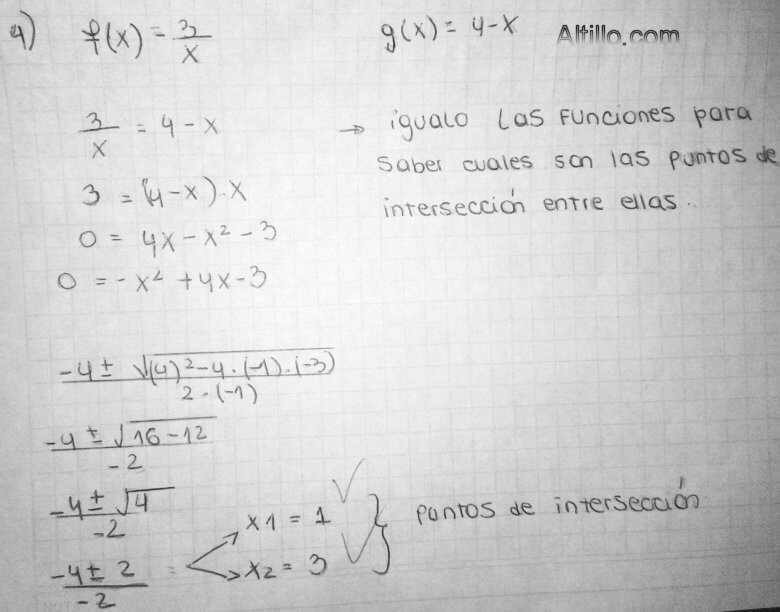 4) f(x) = 3/x g(x) = 4-x Altillo.com
3/x = 4 - x → igualo las funciones para
saber cuales son las puntos de
3 = (4-x).x
intersección entre ellas.
0 = 4x - x² - 3
0 = -x² + 4x - 3
-4 ± √((4)² - 4.(-1).(-3)) / 2.(-1)
-4 ± √(16-12) / -2
-4 ± √4 / -2
x1 = 1 ✓
} puntos de intersección
-4 ± 2 / -2 =
x2 = 3 ✓